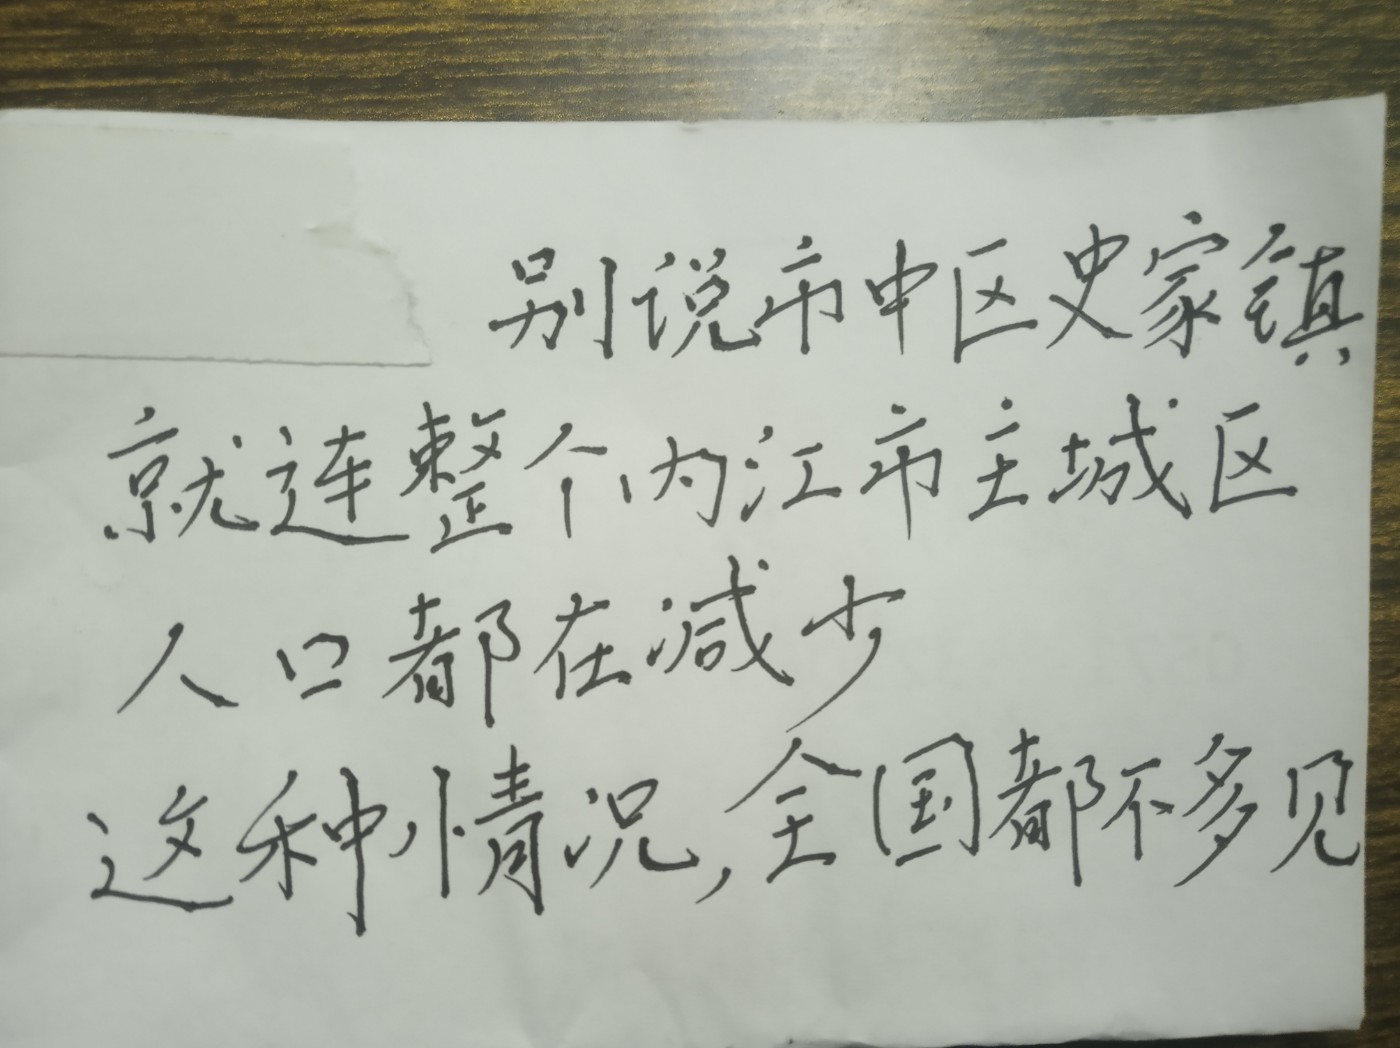 别说市中区史家镇
就连整个内江市主城区
人口都在减少
这种情况,全国都不多见